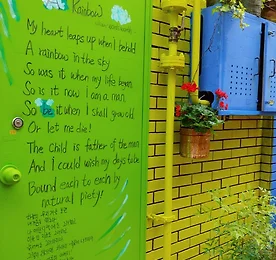 Rainbow
My heart leaps up when I behold
A rainbow in the sky
So was it when my life began
So is it now I am a man.
So be it when I shall grow old
Or let me die!
The Child is father of the man
And I could wish my days to be
Bound each to each by
natural piety!